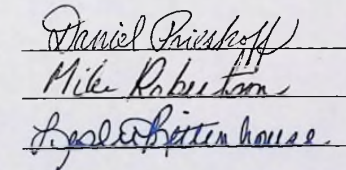 Daniel Prieskoff
Mike Robertson
Leslie Rittenhouse.